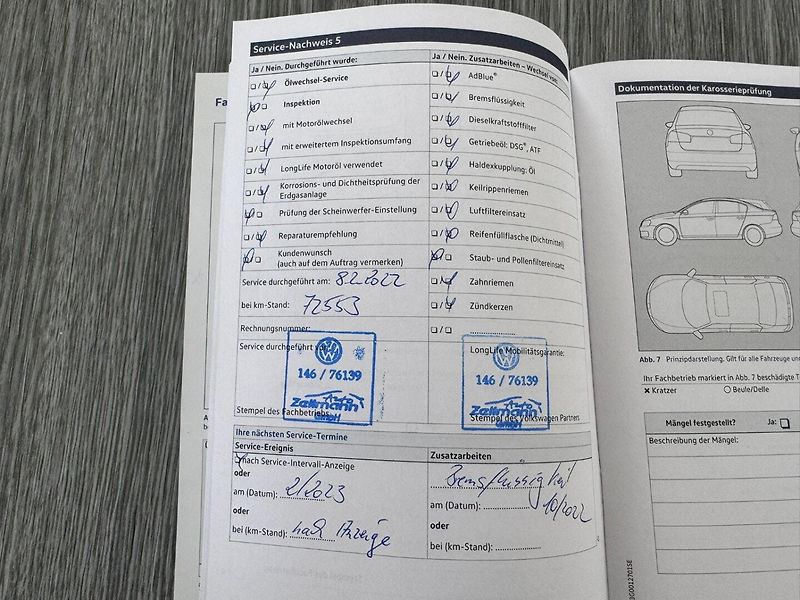 Service-Nachweis 5
Ja / Nein. Durchgeführt wurde:
Ölwechsel-Service
Inspektion
mit Motorölwechsel
mit erweitertem Inspektionsumfang
LongLife Motoröl verwendet
Korrosions- und Dichtheitsprüfung der
Erdgasanlage
Prüfung der Scheinwerfer-Einstellung
Reparaturempfehlung
Kundenwunsch
(auch auf dem Auftrag vermerken)
Service durchgeführt am: 8.2.2022
bei km-Stand: 72553
Rechnungsnummer:
Service durchgeführt von:
146 / 76139
Auto
Zellmann
GmbH
Stempel des Fachbetriebs
Ja / Nein. Zusatzarbeiten – Wechsel von:
AdBlue®
Bremsflüssigkeit
Dieselkraftstofffilter
Getriebeöl: DSG®, ATF
Haldexkupplung: Öl
Keilrippenriemen
Luftfiltereinsatz
Reifenfüllflasche (Dichtmittel)
Staub- und Pollenfiltereinsatz
Zahnriemen
Zündkerzen
LongLife Mobilitätsgarantie:
146 / 76139
Auto
Zellmann
GmbH
Stempel des Volkswagen Partners
Ihre nächsten Service-Termine
Service-Ereignis
nach Service-Intervall-Anzeige
oder
am (Datum): 2/2023
oder
bei (km-Stand): nach Anzeige
Zusatzarbeiten
Bremsflüssigkeit
am (Datum): 10/2022
oder
bei (km-Stand):
Fa
Dokumentation der Karosserieprüfung
Abb. 7 Prinzipdarstellung. Gilt für alle Fahrzeuge
Ihr Fachbetrieb markiert in Abb. 7 beschädigte
Kratzer
Beule/Delle
Mängel festgestellt? Ja:
Beschreibung der Mängel: